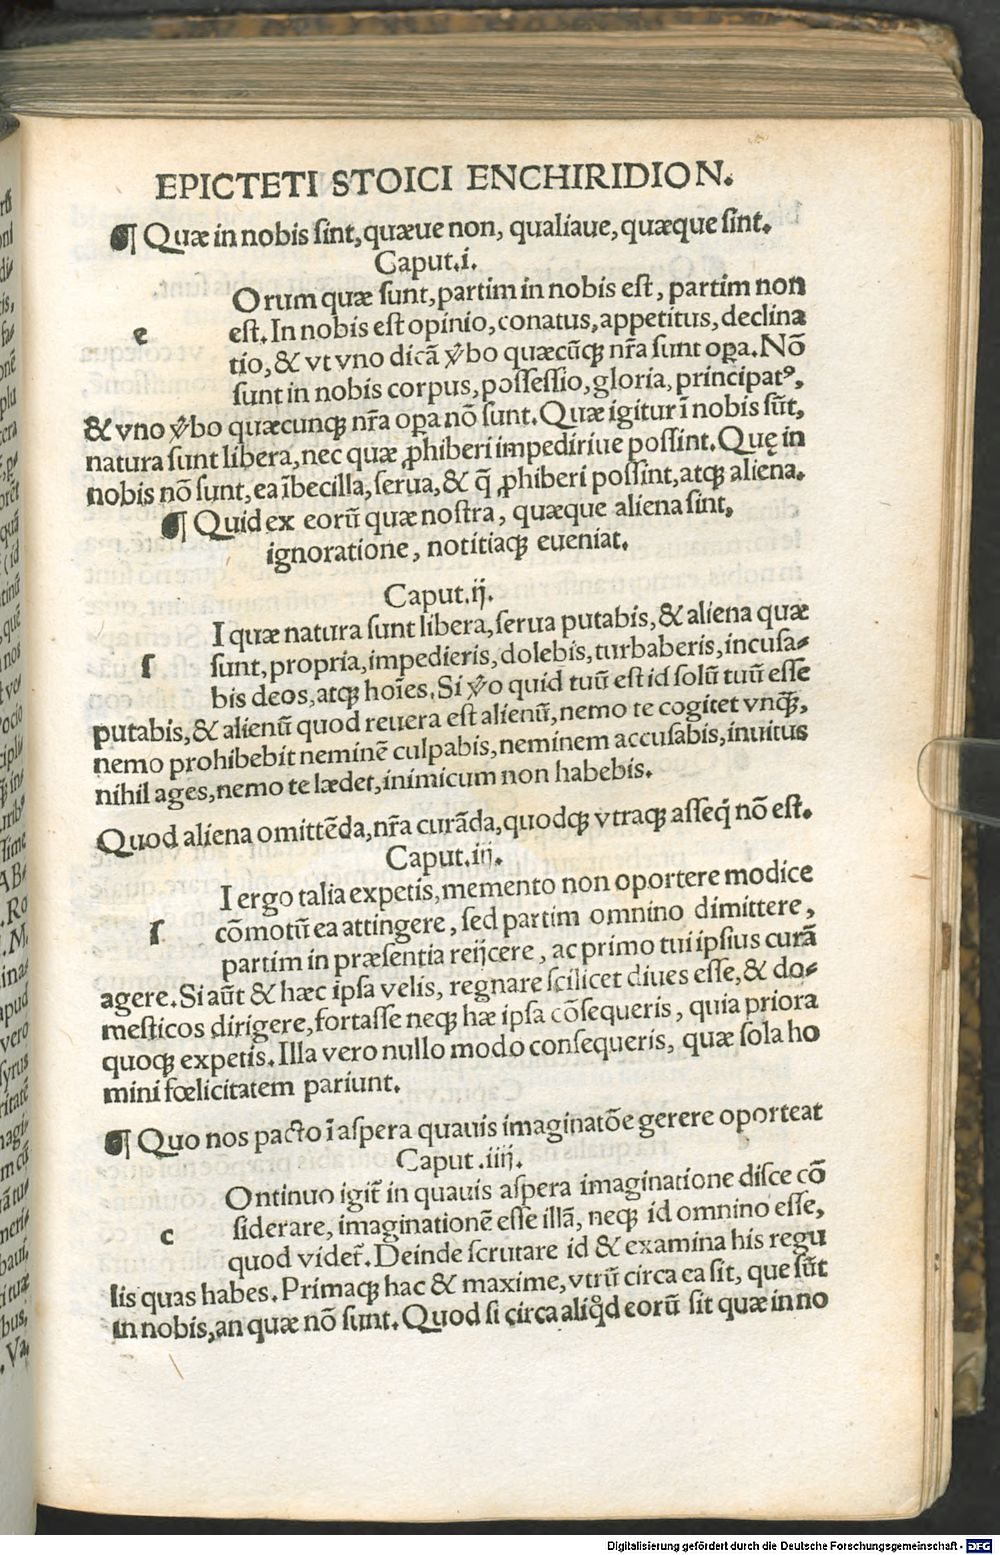 EPICTETI STOICI ENCHIRIDION.
¶ Quæ in nobis ſint, quæue non, qualiaue, quæque ſint.
Caput.i.
Orum quæ ſunt, partim in nobis eſt, partim non
e eſt. In nobis eſt opinio, conatus, appetitus, declina
tio, & vt vno dicã v̓bo quæcũqꝫ nr̃a ſunt oꝑa. Nõ
ſunt in nobis corpus, poſſeſſio, gloria, principatꝰ,
& vno v̓bo quæcunqꝫ nr̃a oꝑa nõ ſunt. Quæ igitur ĩ nobis ſũt,
natura ſunt libera, nec quæ ꝓhiberi impediriue poſſint. Quę in
nobis nõ ſunt, ea ĩbecilla, ſerua, & q̃ ꝓhiberi poſſint, atqꝫ aliena.
¶ Quid ex eorũ quæ noſtra, quæque aliena ſint,
ignoratione, notitiaqꝫ eueniat.
Caput.ij.
I quæ natura ſunt libera, ſerua putabis, & aliena quæ
ſ ſunt, propria, impedieris, dolebis, turbaberis, incuſa-
bis deos, atqꝫ hoĩes. Si v̓o quid tuũ eſt id ſolũ tuũ eſſe
putabis, & alienũ quod reuera eſt alienũ, nemo te cogitet vnqꝫ̃,
nemo prohibebit neminẽ culpabis, neminem accuſabis, inuitus
nihil ages, nemo te lædet, inimicum non habebis.
Quod aliena omittẽda, nr̃a curãda, quodqꝫ vtraqꝫ aſſeq̃ nõ eſt.
Caput.iij.
I ergo talia expetis, memento non oportere modice
ſ cõmotũ ea attingere, ſed partim omnino dimittere,
partim in præſentia reijcere, ac primo tui ipſius curã
agere. Si aũt & hæc ipſa velis, regnare ſcilicet diues eſſe, & do-
meſticos dirigere, fortaſſe neqꝫ hæ ipſa cõſequeris, quia priora
quoqꝫ expetis. Illa vero nullo modo conſequeris, quæ ſola ho
mini fœlicitatem pariunt.
¶ Quo nos pacto ĩ aſpera quauis imaginatõe gerere oporteat
Caput.iiij.
Ontinuo igit̃ in quauis aſpera imaginatione diſce cõ
c ſiderare, imaginationẽ eſſe illã, neqꝫ id omnino eſſe,
quod videt̃. Deinde ſcrutare id & examina his regu
lis quas habes. Primaqꝫ hac & maxime, vtrũ circa ea ſit, que ſũt
in nobis, an quæ nõ ſunt. Quod ſi circa aliq̊d eorũ ſit quæ in no
Digitalisierung gefördert durch die Deutsche Forschungsgemeinschaft - DFG